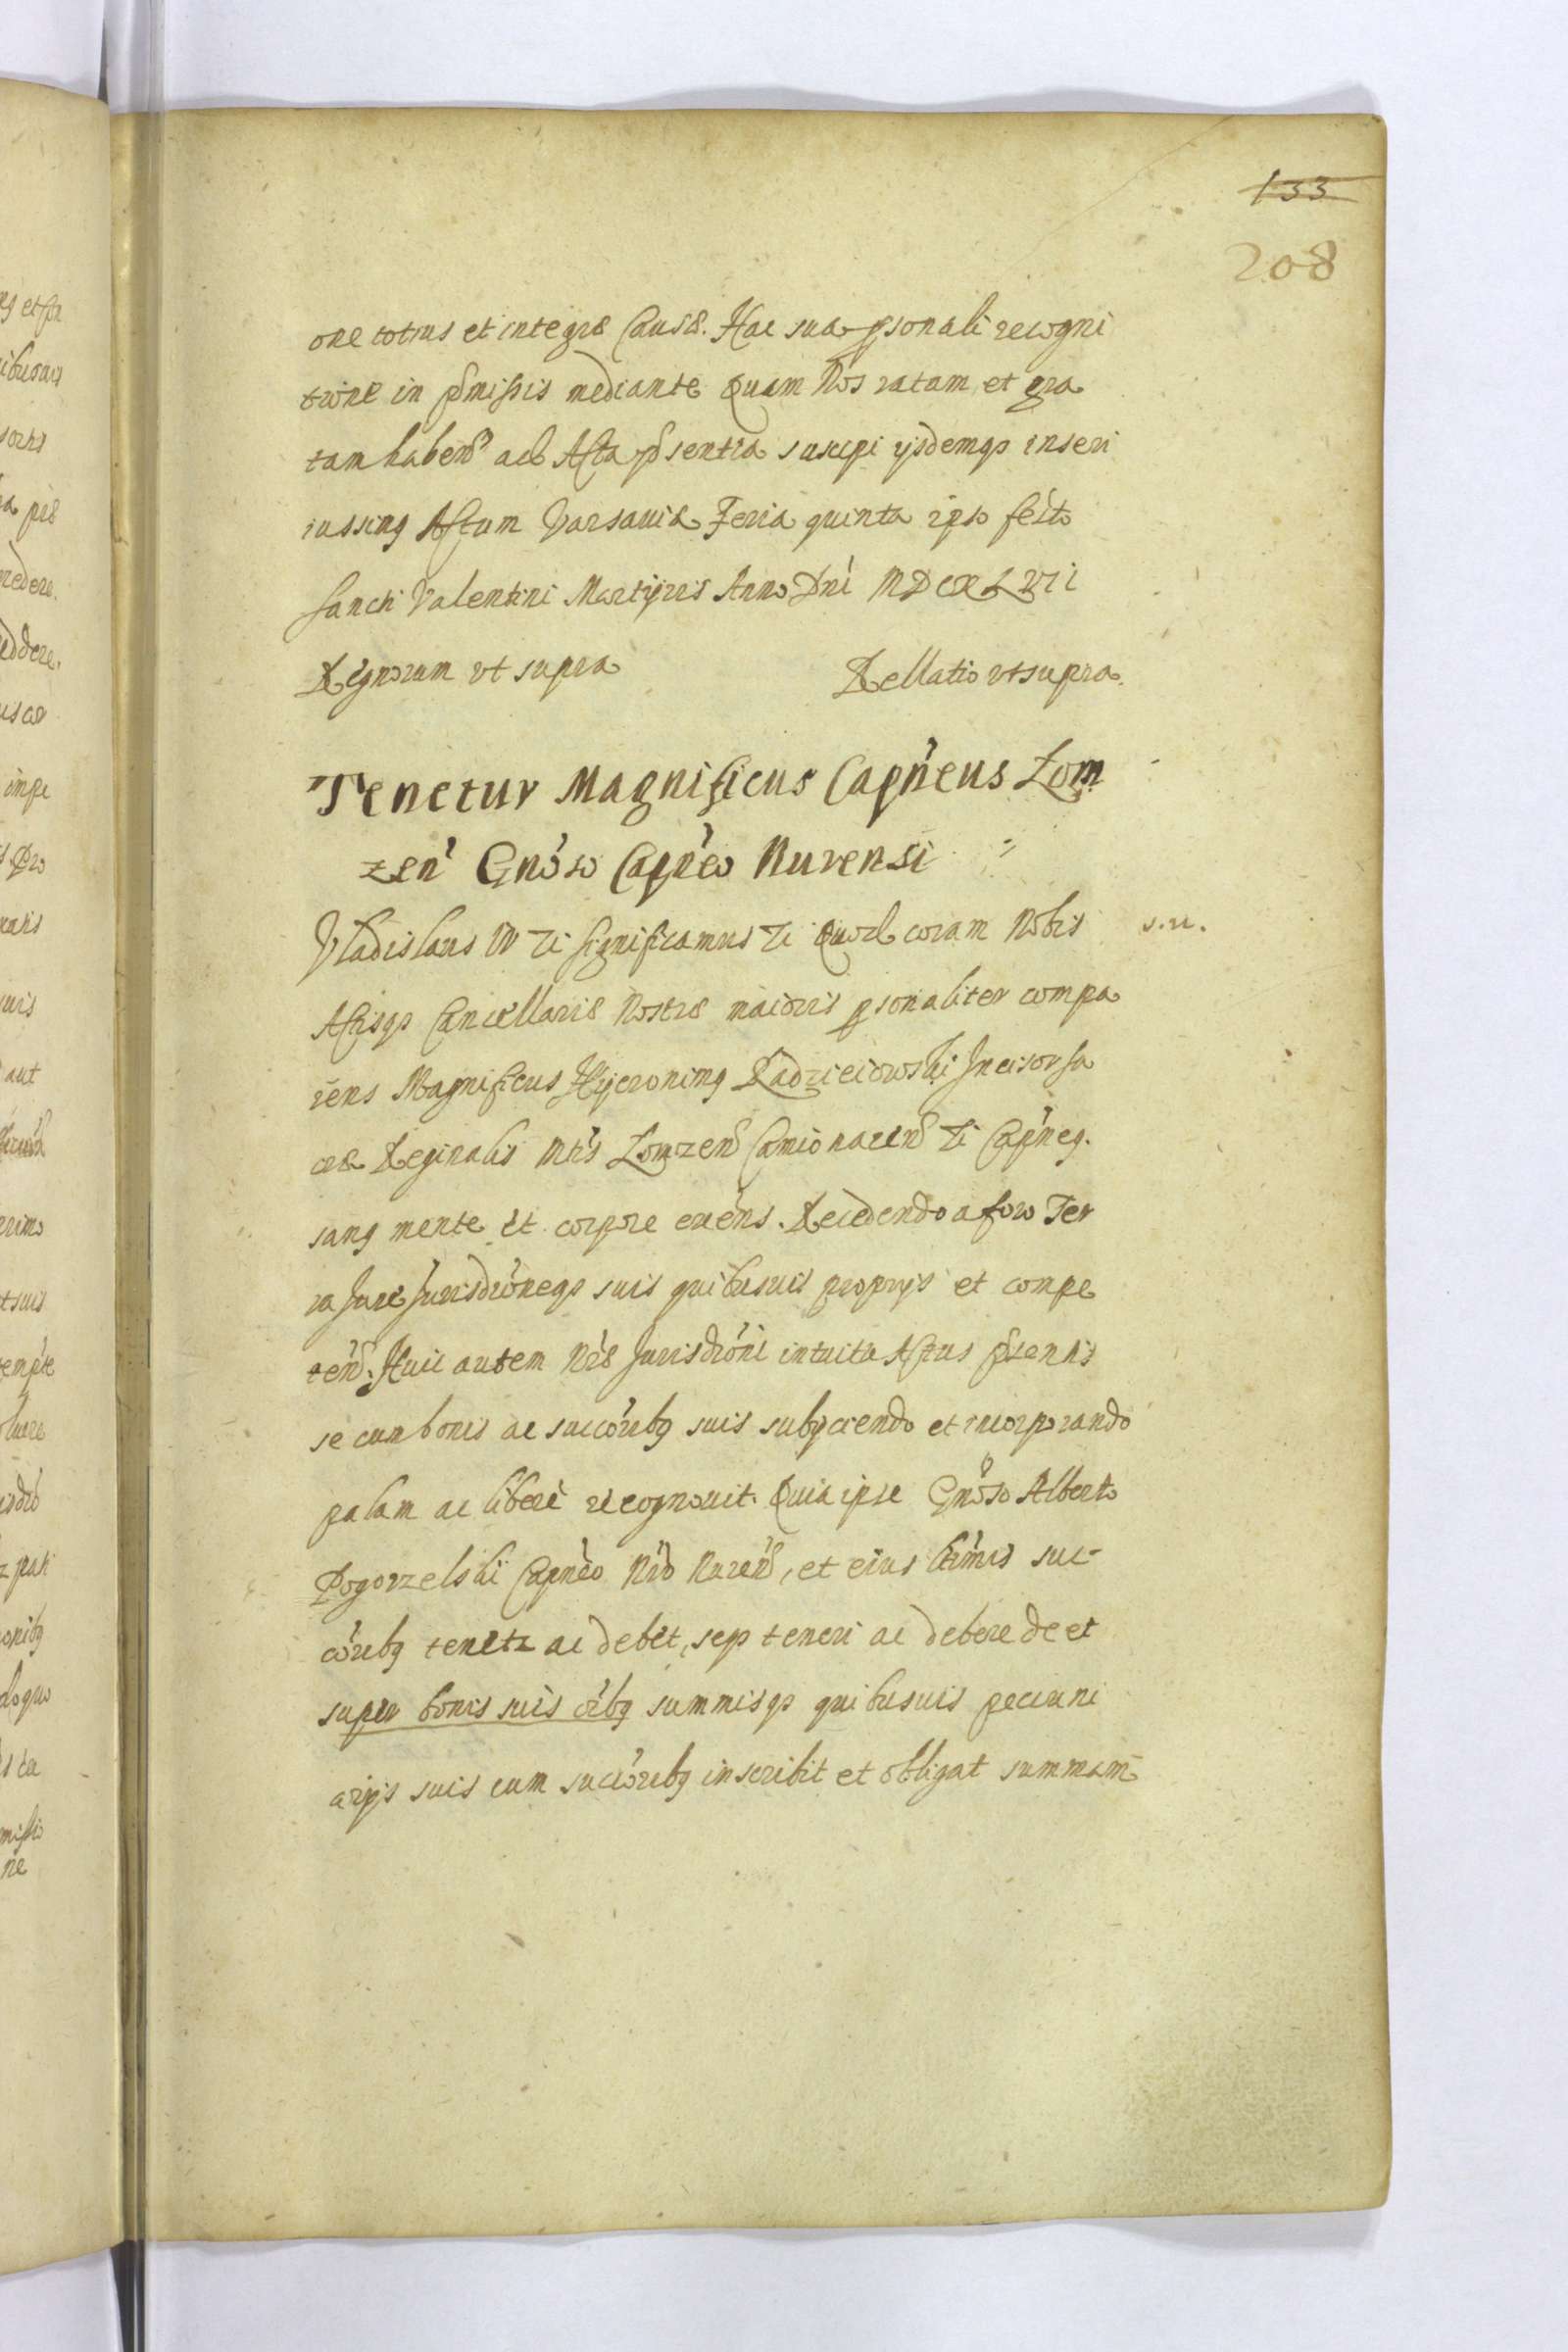 133
208
one totius et integræ Causæ. Hac sua psonali recogni
tione in pmissis mediante Quam Nos ratam et gra
tam haben ad Acta psentia suscepi ijsdemqz inseri
iussimq Actum Varsaviæ Feria quinta ipso festo
Sancti Valentini Martyris Anno Dni MDCXLVII
Regnorum vt supra Rellatio vt supra.
Tenetur Magnificus Capneus Lom
zen Gnoso Capneo Nurensi
Vladislaus IV Ti significamus Ti Quod coram Nobis s.u.
Actisqz Cancellariæ Nostræ maioris psonaliter compa
rens Magnificus Hyeronimq Radzieiowski Incisor Sa
cræ Reginalis Mtis Lomzen Camionacen Ti Capneq.
sanq mente et corpore exens. Recedendo a foro Ter
ra Jure Jurisdoneqz suis quibusuis proprijs et compe
ten. Huic autem Nræ Jurisdoni intuitu Actus psentis
se cum bonis ac succorubq suis subijciendo et incorporando
palam ac libere recognouit. Quia ipse Gnoso Alberto
Pogorzelski Capneo Nro Nuren, et eius ltimis suc-
corubq tenetz ac debet, seqz teneri ac debere de et
super bonis suis oibq summisqz quibusuis pecuni
arijs suis cum succorubq inscribit et obligat summam